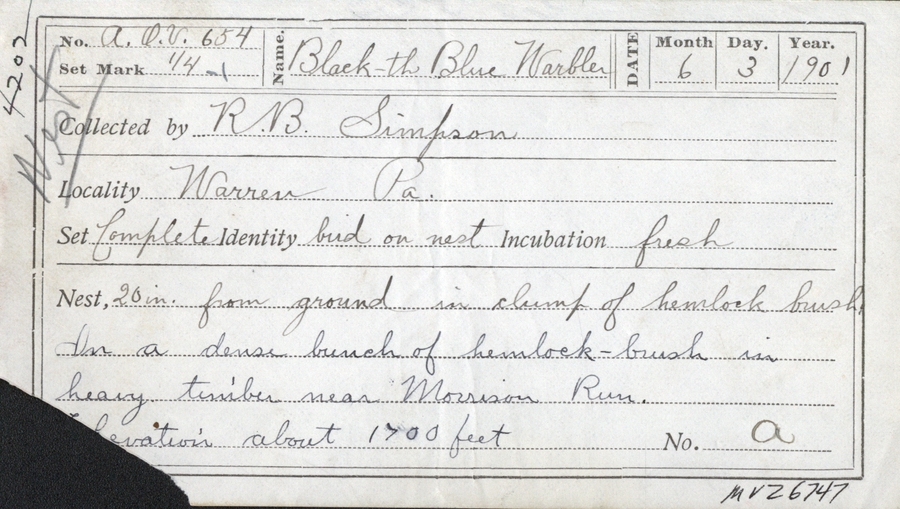 4202
Nest
No. A. O.U. 654
Set Mark 1/4 -1
Name. Black-th Blue Warbler
DATE Month 6 Day. 3 Year. 1901
Collected by R.B. Simpson
Locality Warren Pa.
Set Complete Identity bird on nest Incubation fresh
Nest, 20 in. from ground in clump of hemlock brush.
In a dense bunch of hemlock-brush in
heavy timber near Morrison Run.
Elevation about 1700 feet No. a
MVZ6747